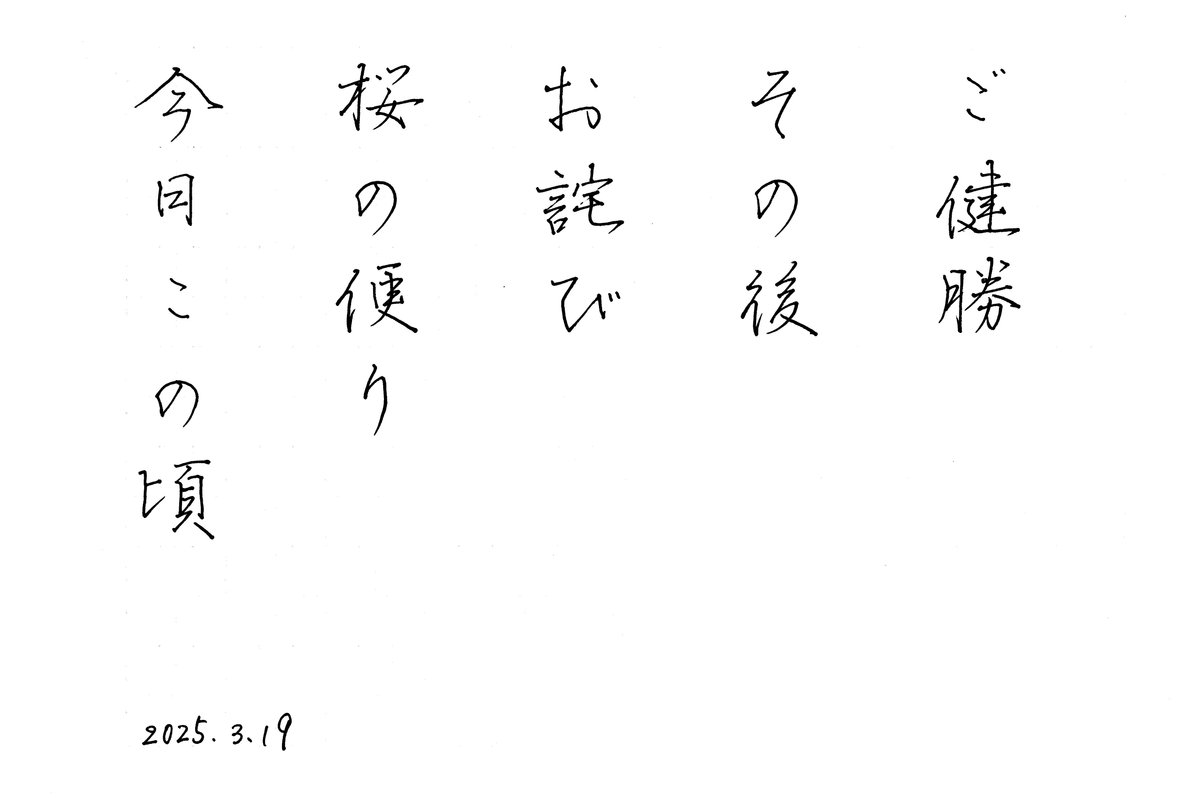 ご健勝
その後
お詫び
桜の便り
今日この頃
2025.3.19